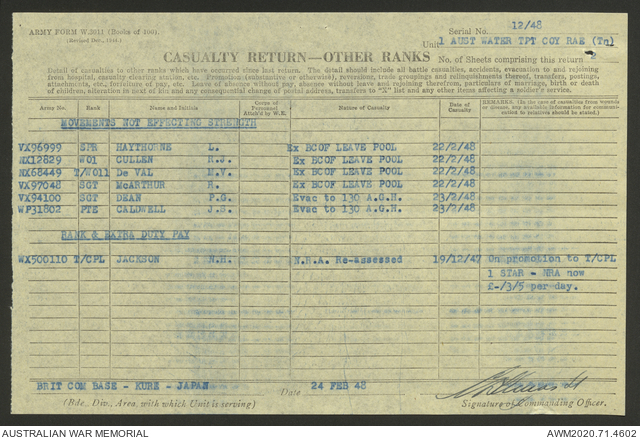 ARMY FORM W.3011 (Books of 100).
(Revised Dec., 1944.)
Serial No. 12/48
Unit 1 AUST WATER TPT COY RAE (Tn)
CASUALTY RETURN—OTHER RANKS
No. of Sheets comprising this return 2
Detail of casualties to other ranks which have occurred since last return. The detail should include all battle casualties, accidents, evacuation to and rejoining
from hospital, casualty clearing station, etc. Promotion (substantive or otherwise), reversions, trade groupings and relinquishments thereof, transfers, postings,
attachments, etc., forfeiture of pay, etc. Leave or absence without pay, absence without leave and rejoining therefrom, particulars of marriage, birth or death
of children, alteration in next of kin and any consequential change of postal address, transfers to "X" list and any other items affecting a soldier's service.
Army No. Rank Name and Initials Corps of Personnel Attach'd by W.E. Nature of Casualty Date of Casualty REMARKS. (In the case of casualties from wounds or disease, any available information for communication to relatives should be stated.)
MOVEMENTS NOT EFFECTING STRENGTH
VX96999 SPR HAYTHORNE L. Ex BCOF LEAVE POOL 22/2/48
NX12829 WO1 CULLEN R.J. Ex BCOF LEAVE POOL 22/2/48
NX68449 T/WO11 De VAL M.V. Ex BCOF LEAVE POOL 22/2/48
VX97048 SGT McARTHUR R. Ex BCOF LEAVE POOL 22/2/48
VX94100 SGT DEAN P.G. Evac to 130 A.G.H. 23/2/48
WP31802 PTE CALDWELL J.S. Evac to 130 A.G.H. 23/2/48
RANK & EXTRA DUTY PAY
WX500110 T/CPL JACKSON N.H. N.R.A. Re-assessed 19/12/47 On promotion to T/CPL
1 STAR - NRA now
£-/3/5 per day.
BRIT COM BASE - KURE - JAPAN
Date 24 FEB 48
(Bde., Div., Area, with which Unit is serving)
Signature of Commanding Officer.
AUSTRALIAN WAR MEMORIAL
AWM2020.71.4602